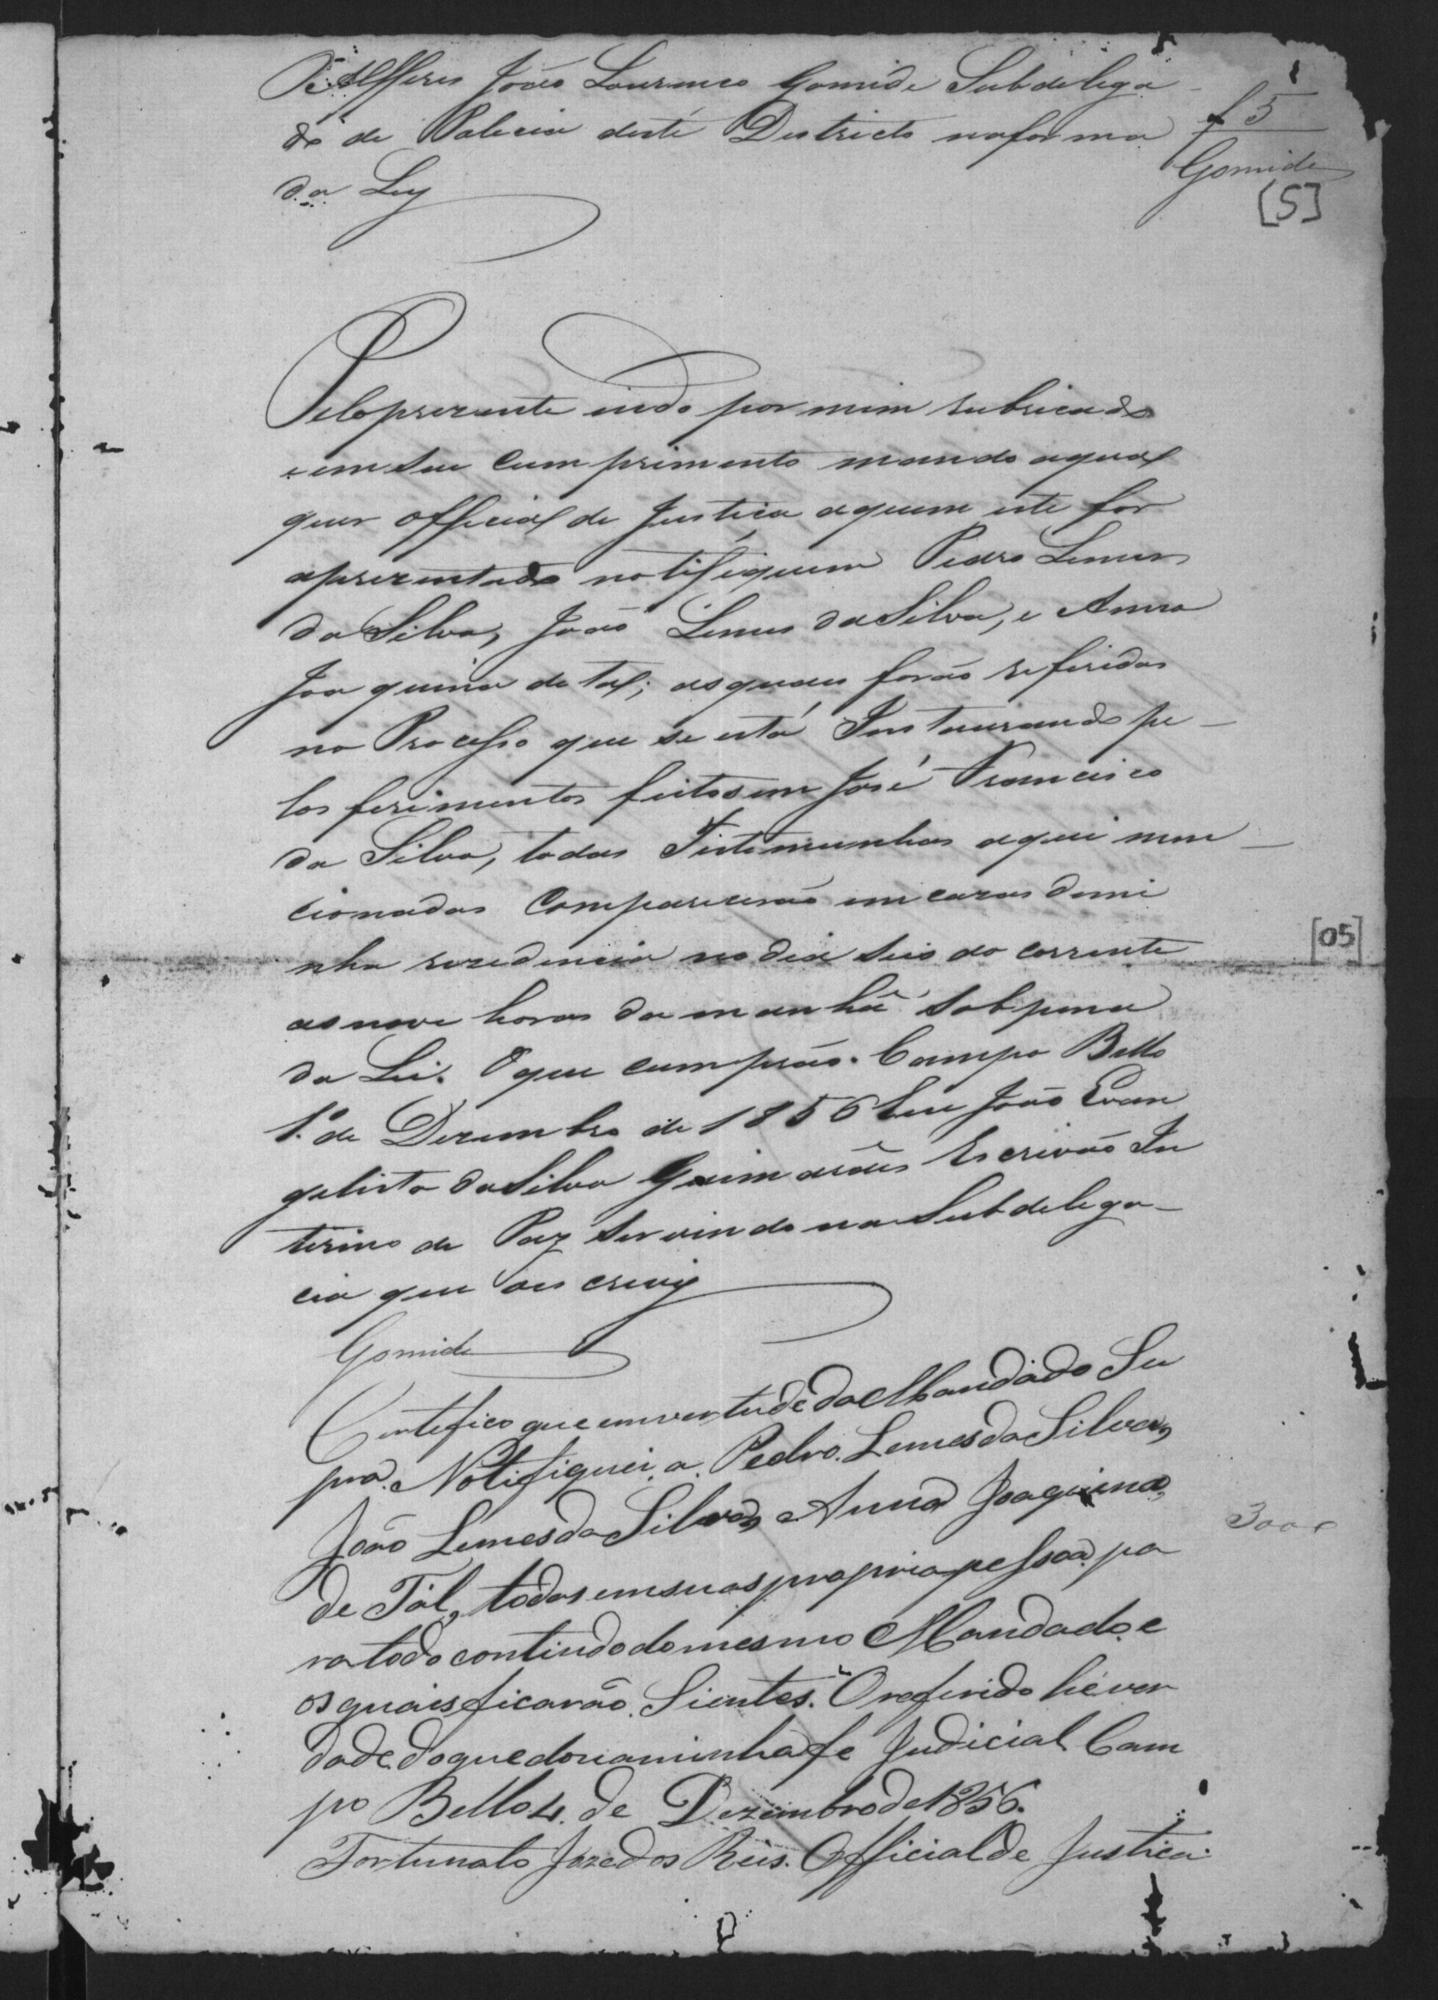 O Alferes João Lourenco Gomide Subdelega
do de Policia deste Districto na forma
da Ley
f 5
Gomide
[5]
Pelo prezente indo por mim rubricado
e em seu cumprimento mando a qual
quer official de Justiça a quem este for
aprezentado notifiquem Pedro Lemes
da Silva, João Lemes da Silva, e Anna
Joaquina de tal; as quaes forão referidas
no Processo que se está Instaurando pe-
los ferimentos feitos em José Francisco
da Silva, todas Testemunhas aqui men-
cionadas Comparecerão em cazas de mi
nha rezedencia no dia seis do corrente
as nove horas da manhã sob pena
da Lei. O que cumprão. Campo Bello
1.º de Dezembro de 1856 Eu João Evan
gelista da Silva Guimarães Escrivão In
terino de Paz servindo na Subdelega-
cia que o escrevy
Gomide
[05]
Certefico que em vertude do Mandado Su
pra Notifiquei a Pedro Lemes da Silva,
João Lemes da Silva, e Anna Joaquina
de Tal, todos em suas propria pessoa pa
ra todo contiudo do mesmo Mandado e
os quais ficarão Sientes. O referido hé ver
dade do que dou a minha fe Judicial Cam
po Bello 4 de Dezembro de 1856.
Fortunato Joze dos Reis. Official de Justica
3000